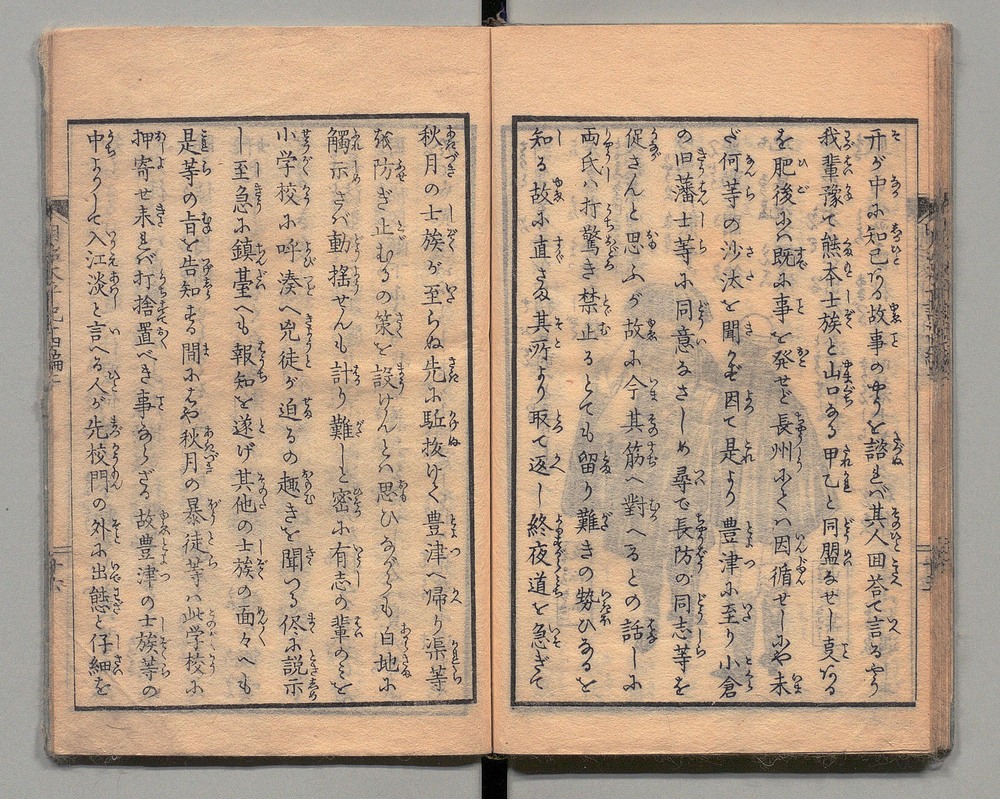 开が中に知己なる故事のやうを諮れバ其人回答て言るやう
我輩豫て熊本士族と山口なる甲乙と同盟なせし真なる
を肥後にハ既に事を発せど長州にてハ因循せしにや未
だ何等の沙汰を聞かず因て是より豊津に至り小倉
の旧藩士等に同意なさしめ尋で長防の同志等を
促さんと思ふが故に今其筋へ對へるとの話しに
両氏ハ打驚き禁止るとても留り難きの勢ひなるを
知る故に直さま其所より取て返し終夜道を急ぎて
秋月の士族が至らぬ先に駈抜けて豊津へ帰り渠等
を防ぎ止むるの策を設けんとハ思ひながらも白地に
觸示さバ動揺せんも計り難しと密に有志の輩のミを
小学校に呼湊へ兇徒が迫るの趣きを聞つる侭に説示
し至急に鎮臺へも報知を遂げ其他の士族の面々へも
是等の旨を告知する間にはや秋月の暴徒等ハ此学校に
押寄せ来れバ打捨置べき事ならざる故豊津の士族等の
中よりして入江淡と言へる人が先校門の外に出態と仔細を